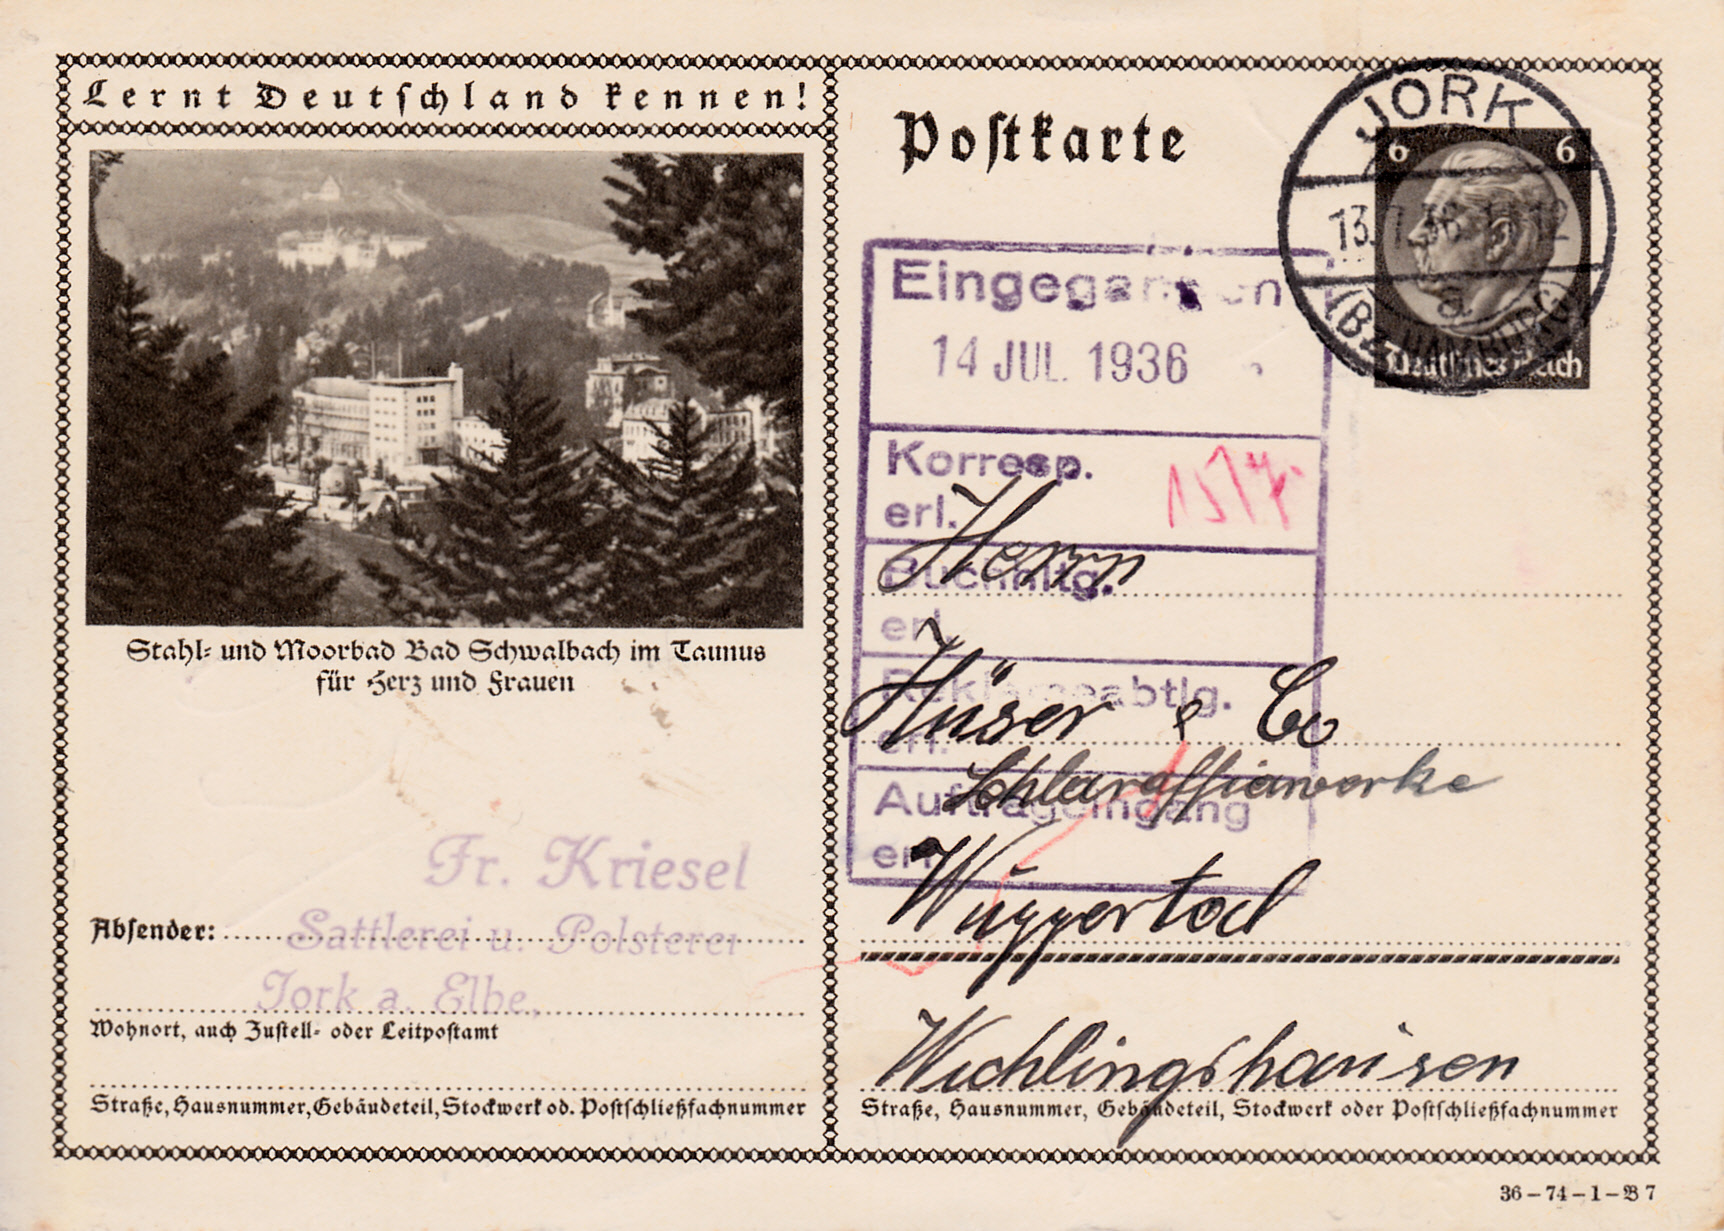 Lernt Deutschland kennen!
Stahl- und Moorbad Bad Schwalbach im Taunus
für Herz und Frauen
Fr. Kriesel
Absender: Sattlerei u. Polsterei
Jork a. Elbe.
Wohnort, auch Zustell- oder Leitpostamt
Straße, Hausnummer, Gebäudeteil, Stockwerk od. Postschließfachnummer
Postkarte
JORK
13.7.36
(Bz. HAMBURG)
6 6
Deutsches Reich
Eingegangen
14 JUL. 1936
Korresp.
erl.
15/7.
Buchhltg.
erl.
Reklameabtlg.
erl.
Auftrageingang
erl.
Herrn
Hüser & Co
Schlaraffiawerke
Wuppertal
Wichlingshausen
Straße, Hausnummer, Gebäudeteil, Stockwerk oder Postschließfachnummer
36-74-1-B 7